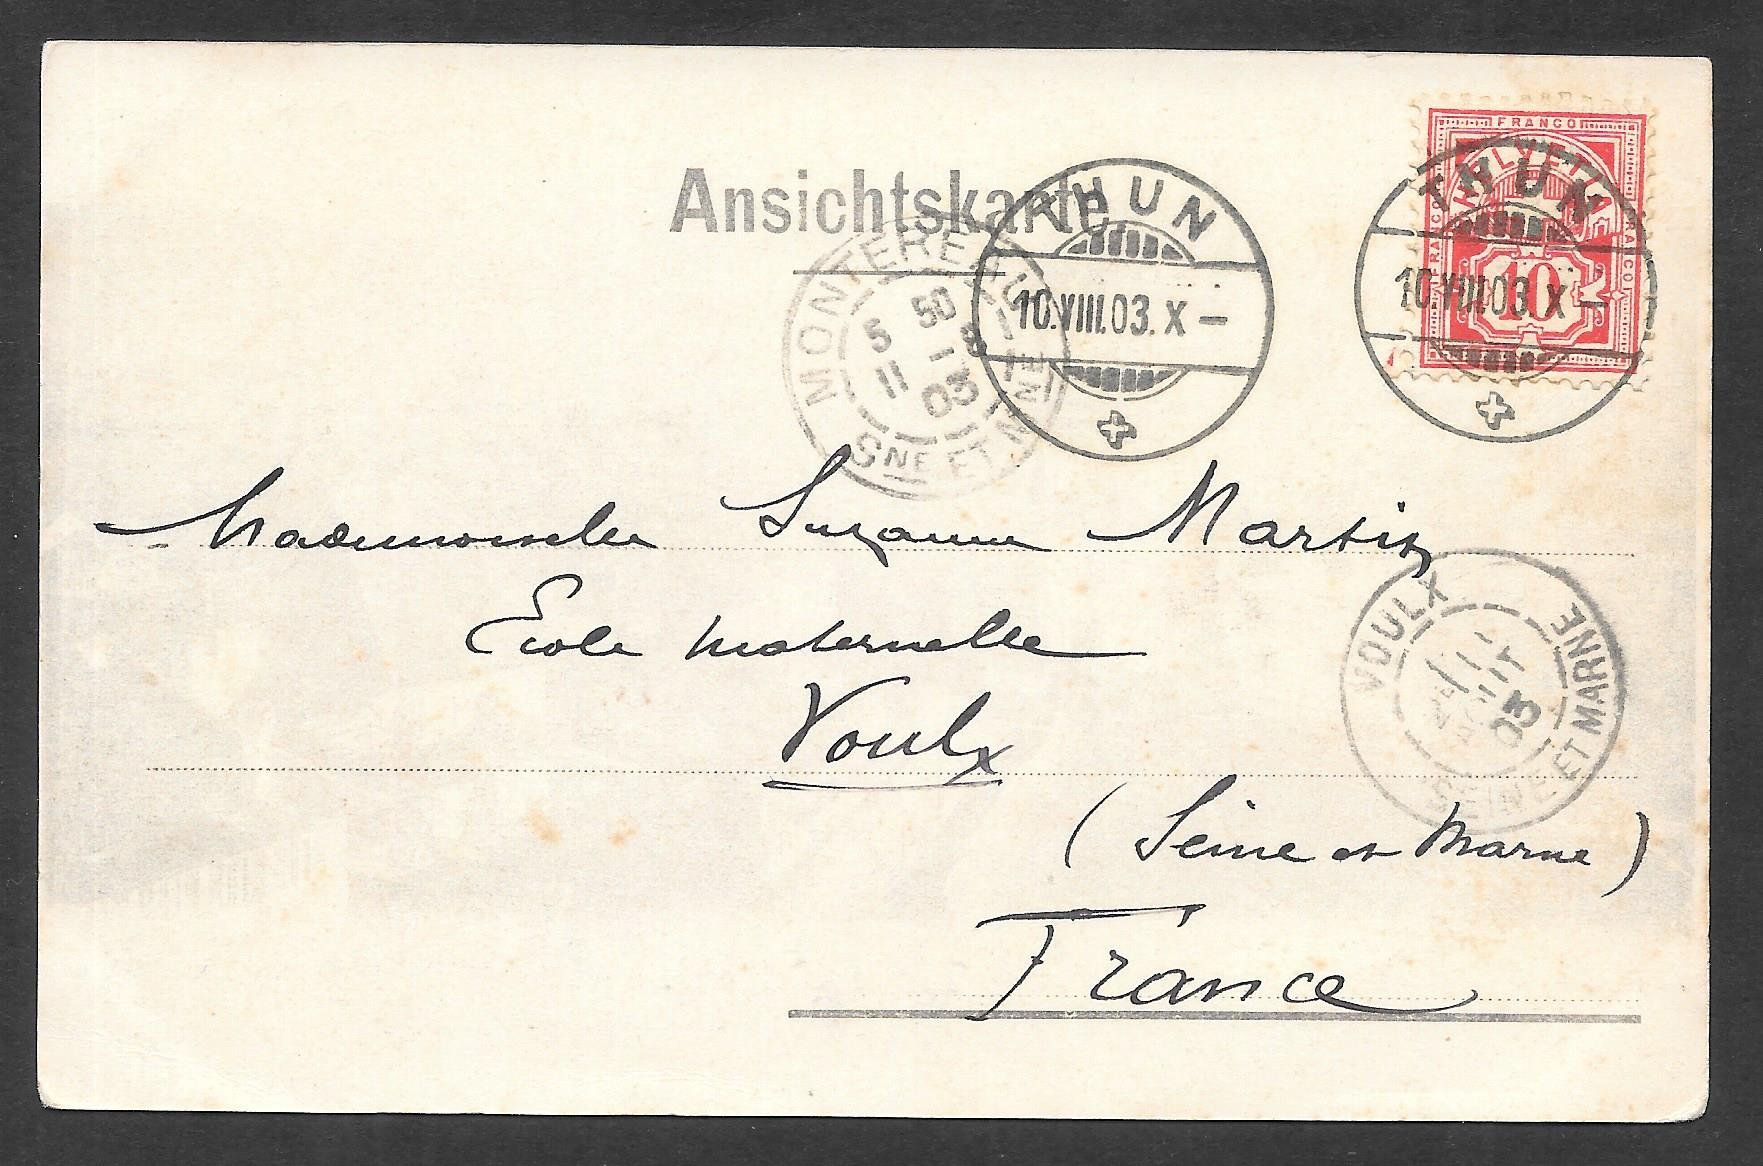 FRANCO
HELVETIA
FRANCO
FRANCO
10
Ansichtskarte
THUN
10.VIII.03.X –
THUN
10.VIII.03.X –
MONTEREAU
5 50 S
11 8
03
SNE ET MNE
Mademoiselle Suzanne Martin
École maternelle
Voulx
(Seine et Marne)
France
VOULX
03
SEINE ET MARNE